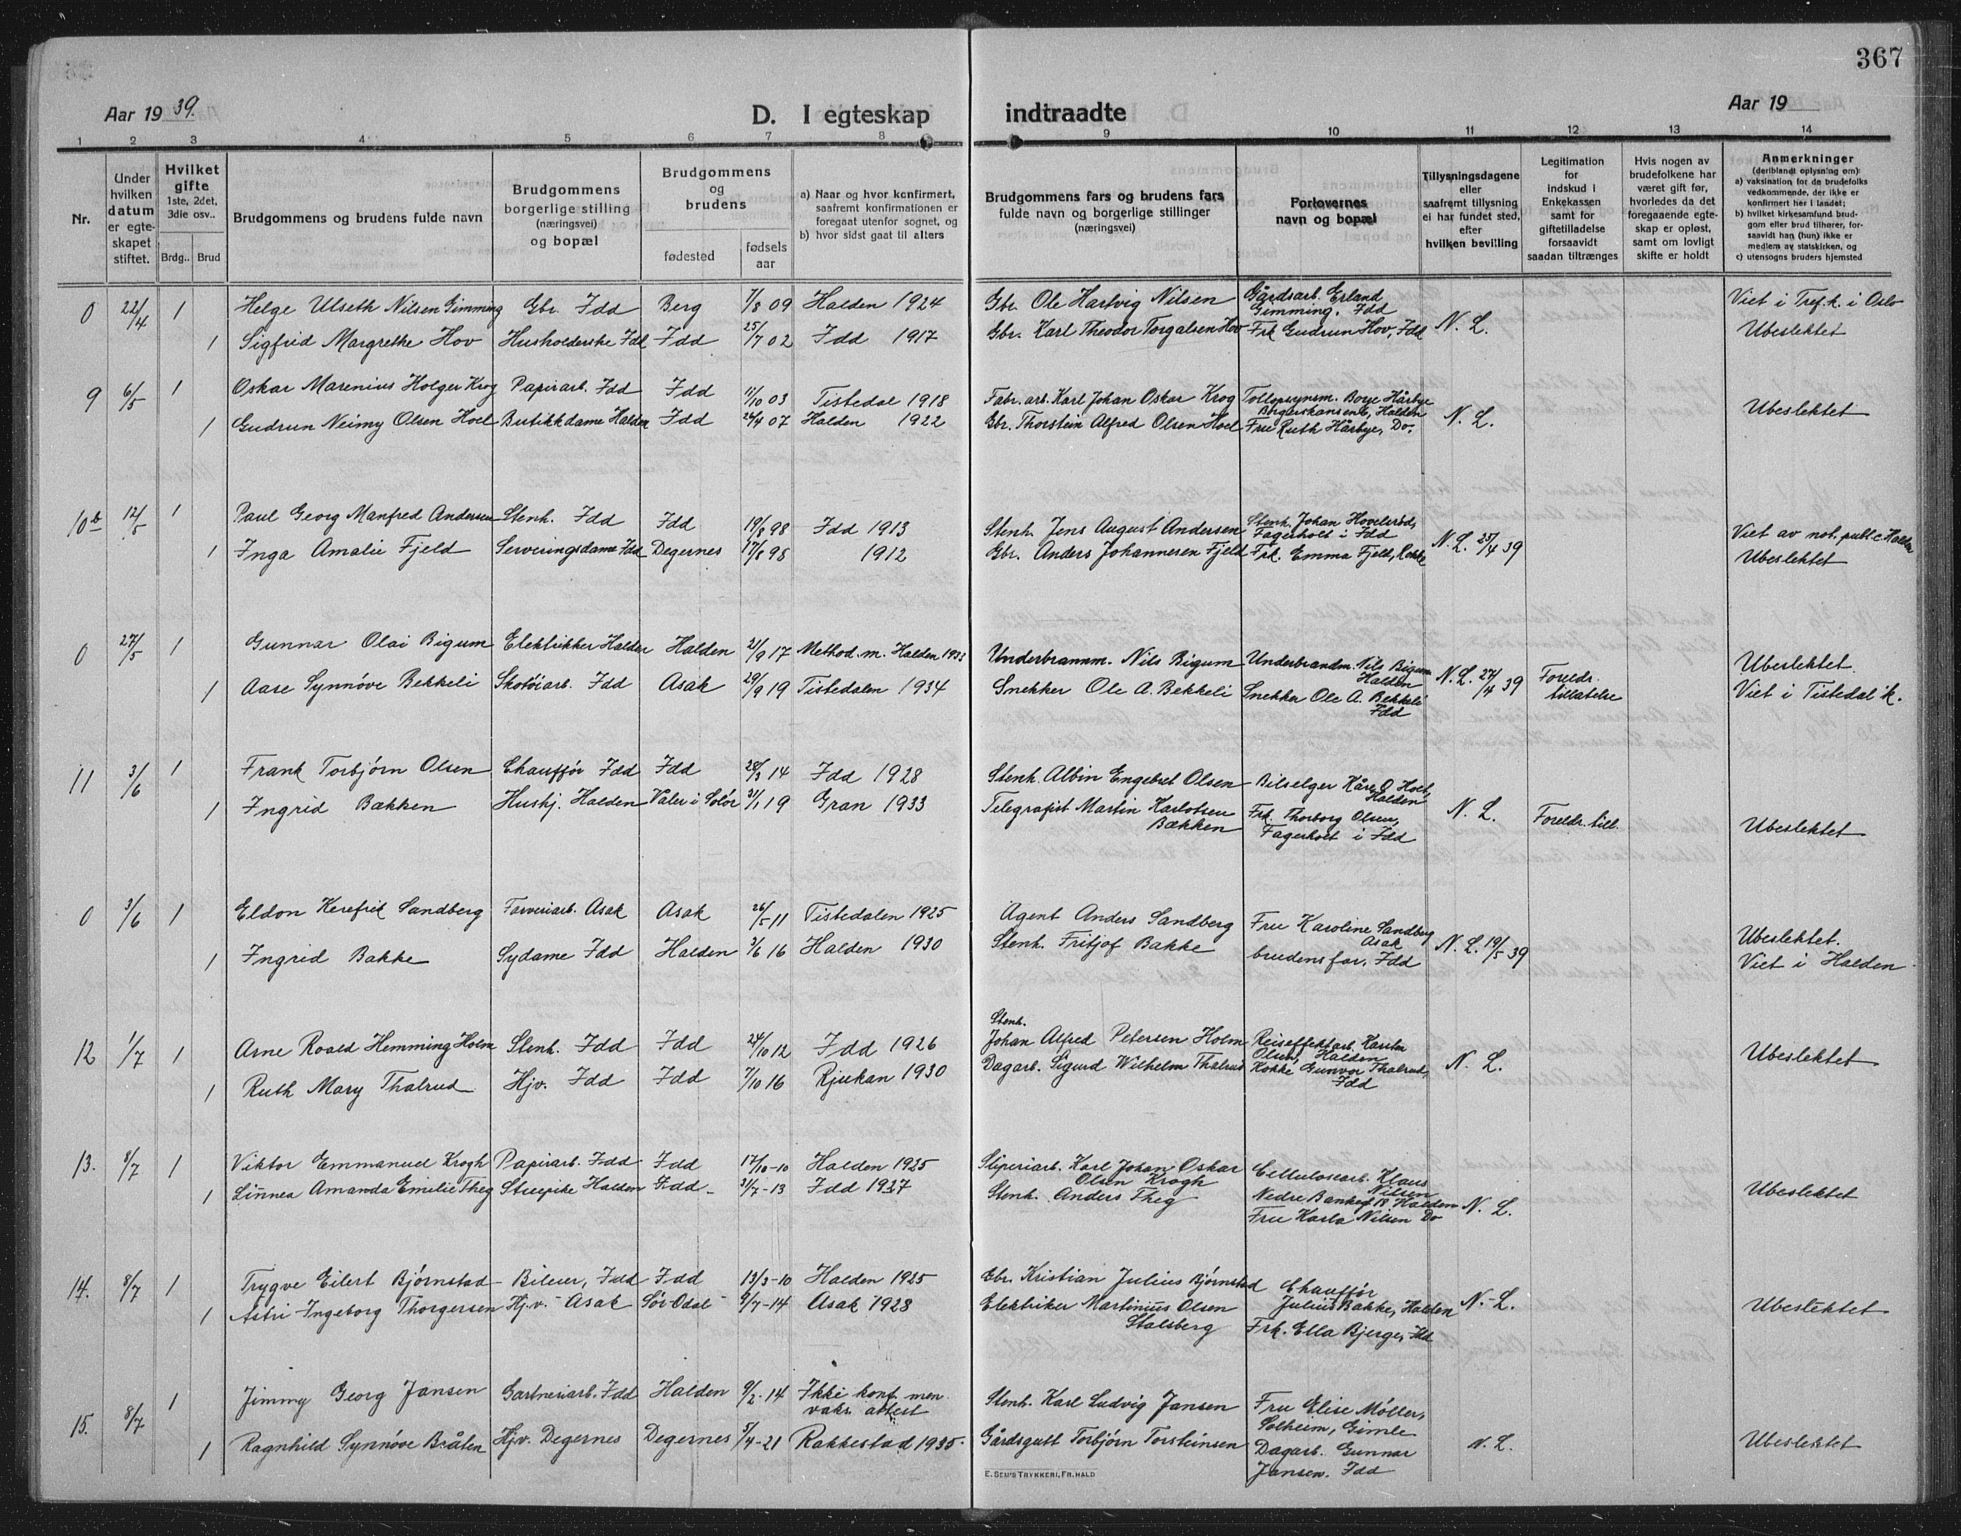 367
Aar 19 39.
D. I egteskap
indtraadte
Aar 19
1 2 3 4 5 6 7 8 9 10 11 12 13 14
Nr.
Under hvilken datum er egteskapet stiftet.
Hvilket gifte 1ste, 2det, 3die osv..
Brdg.. Brud
Brudgommens og brudens fulde navn
Brudgommens borgerlige stilling (næringsvei) og bopæl
Brudgommens og brudens
fødested
fødsels aar
a) Naar og hvor konfirmert, saafremt konfirmationen er foregaat utenfor sognet, og
b) hvor sidst gaat til alters
Brudgommens fars og brudens fars fulde navn og borgerlige stillinger (næringsvei)
Forlovernes navn og bopæl
Tillysningsdagene eller saafremt tillysning ei har fundet sted, efter hvilken bevilling
Legitimation for indskud i Enkekassen samt for giftetilladelse forsaavidt saadan tiltrænges
Hvis nogen av brudefolkene har været gift før, hvorledes da det foregaaende egteskap er opløst, samt om lovligt skifte er holdt
Anmerkninger (deriblandt oplysning om):
a) vaksination for de brudefolks vedkommende, der ikke er konfirmert her i landet;
b) hvilket kirkesamfund brudgom eller brud tilhører, forsaavidt han (hun) ikke er medlem av statskirken, og
c) utensogns bruders hjemsted
0 22/4 1 Helge Ulseth Nilsen Gimming Gbr. Idd Berg 7/8 09 Halden 1924 Gbr. Ole Hartvig Nilsen Gårdsarb. Erland Gimming, Idd Viet i Tref.k. i Oslo
1 Sigfrid Margrethe Hov Husholderske Idd Idd 25/7 02 Idd 1917 Gbr. Karl Theodor Torgalsen Hov Frk Gudrun Hov, Idd N. L. Ubeslektet
9 6/5 1 Oskar Marenius Holger Krog Papirarb. Idd Idd 11/10 03 Tistedal 1918 Fabr. arb. Karl Johan Oskar Krog Tollopsynsm. Borge Hårbye Borgerskansen, Halden Ubeslektet
1 Gudrun Neimy Olsen Hoel Butikkdame Halden Idd 26/4 07 Halden 1922 Gbr. Thorstein Alfred Olsen Hoel Fru Ruth Hårbye, Do. N. L.
10 b 12/5 1 Paul Georg Manfred Andersen Stenh. Idd Idd 19/8 98 Idd 1913 Stenh. Jens August Andersen Stenh. Johan Hovelsrød, Fagerholt i Idd Viet av not. public Halden
1 Inga Amalie Fjeld Serveringsdame Idd Degernes 17/8 98 1912 Gbr. Anders Johannesen Fjeld Frk. Emma Fjeld, Rokke N. L. 25/4 39 Ubeslektet
0 27/5 1 Gunnar Olai Bigum Elektrikker Halden Halden 21/9 17 Method. m. Halden 1933 Underbrannm. Nils Bigum Underbrandm. Nils Bigum Halden N. L. 27/4 39 Foreldr. tillatelse Ubeslektet
1 Aase Synnøve Bekkeli Skotøiarb. Idd Asak 29/9 19 Tistedalen 1934 Snekker Ole A. Bekkeli Snekker Ole A. Bekkeli Idd Viet i Tistedal k.
11 3/6 1 Frank Torbjørn Olsen Chauffør Idd Idd 28/3 14 Idd 1928 Stenh. Albin Engebret Olsen Bilselger Kåre O Holt, Halden
1 Ingrid Bækken Hushj. Halden Valer i Solør 31/1 19 Gran 1933 Telegrafist Martin Karlotsen Bækken Frk. Thorborg Olsen, Fagerholt i Idd N. L. Foreldr. till. Ubeslektet
0 3/6 1 Eldon Kerefrik Sandberg Farveriarb. Asak Asak 26/5 11 Tistedalen 1925 Agent Anders Sandberg Fru Karoline Sandberg Asak Ubeslektet.
1 Ingrid Bakke Sydame Idd Halden 3/6 16 Halden 1930 Stenh. Fritjof Bakke brudens far, Idd N. L. 19/5 39 Viet i Halden
12 1/7 1 Arne Roald Hemming Holm Stenh. Idd Idd 24/10 12 Idd 1926 Stenh. Johan Alfred Petersen Holm Reiseffektarb. Karsten Olsen, Halden Ubeslektet
1 Ruth Mary Thalrud Hjv. Idd Idd 7/10 16 Rjukan 1930 Dagarb. Sigurd Wilhelm Thalrud Kokke Gunvor Thalrud, Idd N. L.
13. 8/7 1 Viktor Emmanuel Krogh Papirarb. Idd Idd 17/10-10 Halden 1925 Sliperiarb. Karl Johan Oskar Olsen Krogh Cellulosearb. Klaus Nilsen Nedre Bankeg. 13. Halden
1 Linnea Amanda Emilie Theg Stuepike Halden Idd - 31/7-13 Idd 1937 Stenh. Anders Theg Fru Karla Nilsen Do N. L. Ubeslektet
14. 8/7 1 Trygve Eilert Bjørnstad - Bileier, Idd Idd 13/3-10 Halden 1925 Gbr. Kristian Julius Bjørnstad Chauffør Julius Bakke, Halden
1 Astri Ingeborg Thorgersen Hj.v. - Asak Sør-Odal 9/7-14 Asak 1928 Elektriker Martinius Olsen Stalsberg Frk. Ella Bjerge, Idd N.-L. Ubeslektet
15. 8/7 1 Jimmy Georg Jansen Gartneriarb. Idd Halden 9/2-14 Ikke konf. men vaks. attest Stenh. Karl Ludvig Jansen Fru Elise Møller, Solheim, Gimle
1 Ragnhild Synnøve Bråten Hjv. Degernes Degernes 5/4-21 Rakkestad 1935. Gårdsgutt Torbjørn Torsteinsen Dagarb. Gunnar Jansen. Idd N. L. Ubeslektet
E. SEM'S TRYKKERI, FR.HALD